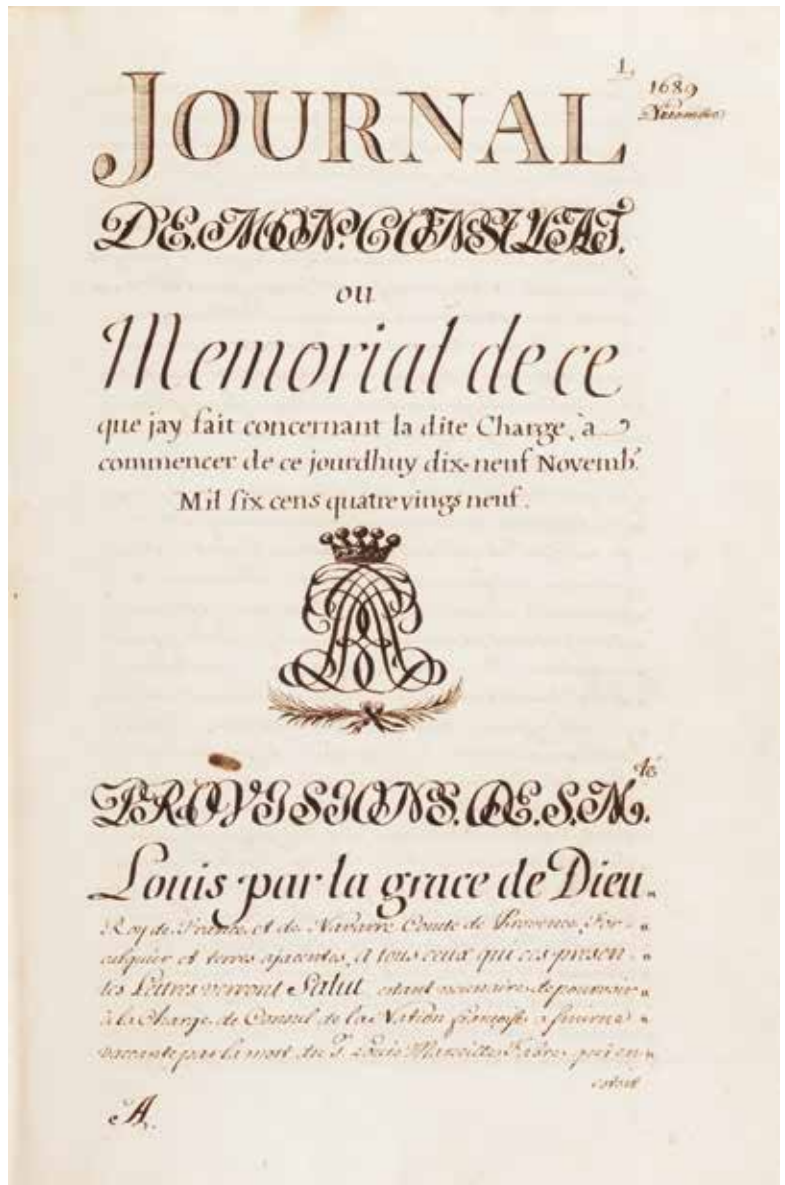 1.
1689
Novembre
JOURNAL
DE.MON.CONSULAT.
ou
Memorial de ce
que jay fait concernant la dite Charge, a
commencer de ce jourdhuy dix-neuf Novemb.
Mil six cens quatrevings neuf.
PROVISIONS.DE.S.M.té
Louis par la grace de Dieu
Roy de France et de Navarre Comte de Provence, For-
calquier et terres ajacentes, A tous ceux qui ces presen-
tes Lettres verront Salut estant necessaire de pourvoir
à la Charge de Consul de la Nation françoise a Smirne
vaccante par la mort du S. Louis Marseille Fabre qui en
estoit
A.